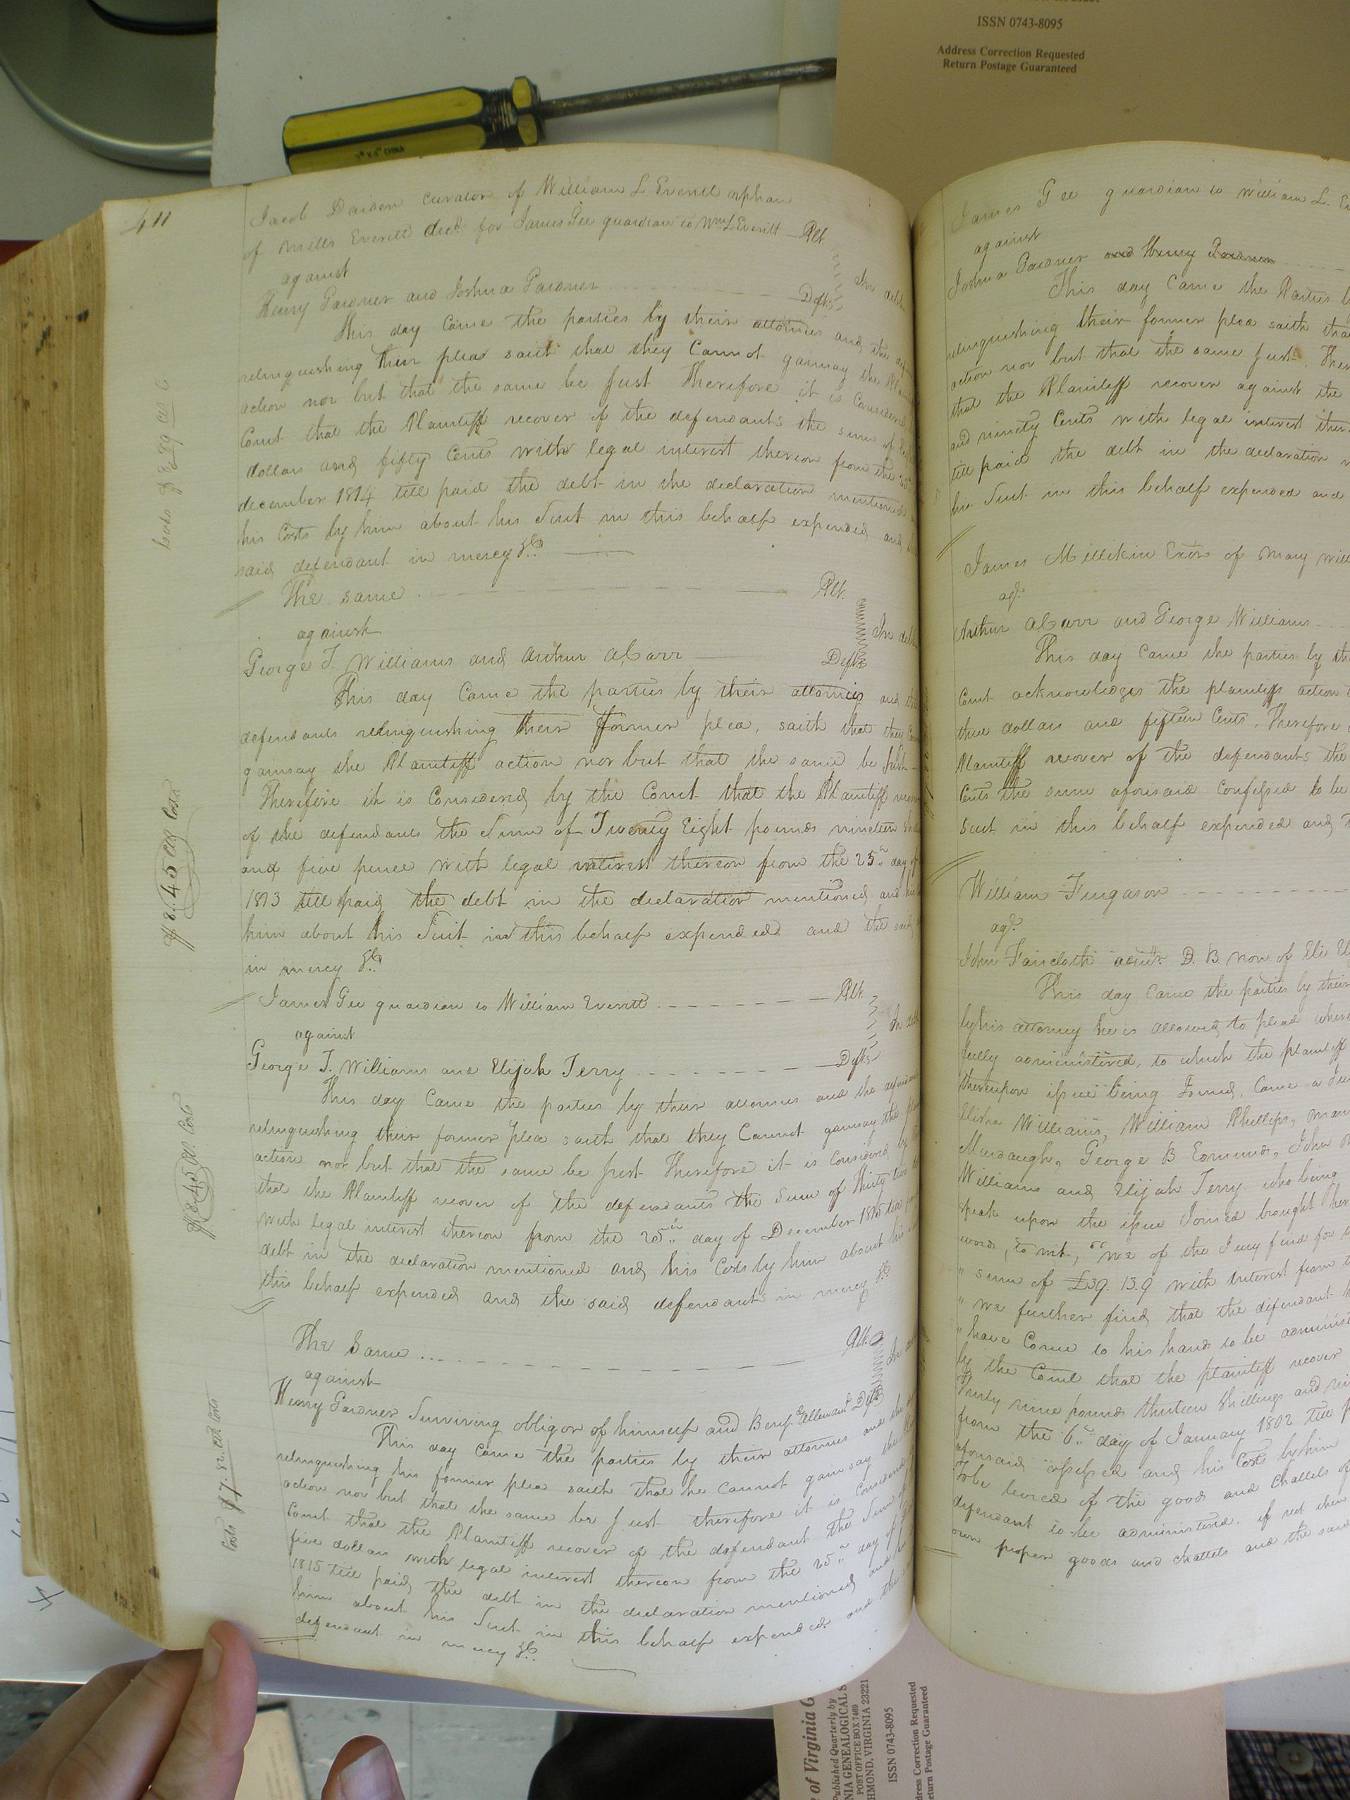 ISSN 0743-8095
Address Correction Requested
Return Postage Guaranteed
411
Jacob Darden curator of William L Everitt orphan
of Mills Everitt decd. for James Gee guardian to Wm L Everitt Plt.
against
Henry Gardner and Joshua Gardner Defts
In debt
This day Came the parties by their attornies and the
relinquishing their plea saith that they Cannot gainsay the
action nor but that the same be Just Therefore it is Considered
Court that the Plaintiff recover of the defendants the sum of
dollars and fifty Cents with legal interest thereon from the 25th
december 1814 till paid the debt in the declaration mentioned
his Costs by him about his Suit in this behalf expended and
said defendant in mercy &c
The same Plt.
against
In debt
George T. Williams and Arthur A Carr Defts
This day Came the parties by their attornies and the
defendants relinquishing their former plea, saith that they
gainsay the Plaintiff action nor but that the same be Just
Therefore it is Considered by the Court that the Plaintiff recover
of the defendants the Sum of Twenty Eight pounds nineteen
and five pence with legal interest thereon from the 25th day of
1813 till paid the debt in the declaration mentioned and his
him about his Suit in this behalf expended and the said
in mercy &c
James Gee guardian to William Everitt Plt.
against
In debt
George T. Williams and Elijah Terry Defts
This day Came the parties by their attornies and the defendants
relinquishing their former plea saith that they Cannot gainsay the
action nor but that the same be Just Therefore it is Considered by
that the Plaintiff recover of the defendants the Sum of Thirty two
with legal interest thereon from the 25th day of December 1815 till
debt in the declaration mentioned and his Costs by him about his
this behalf expended and the said defendant in mercy &c
The Same Plt.
against
Henry Gardner Surviving obligor of himself and Benjn. Allemand Deft
This day Came the parties by their attornies and the
relinquishing his former plea saith that he Cannot gainsay the
action nor but that the same be Just therefore it is Considered
Court that the Plaintiff recover of the defendant the Sum of
five dollars with legal interest thereon from the 25th day of
1815 till paid, the debt in the declaration mentioned and
him about his Suit in this behalf expended and the
defendant in mercy &c.
$8.45 Costs
$8.45 Costs
Costs $7.
James Gee guardian to William L. Ev
against
Joshua Gardner and Henry Gardner
This day Came the Parties
relinquishing their former plea saith that
action nor but that the same Just. There
that the Plaintiff recover against the
and ninety Cents with legal interest there
till paid the debt in the declaration
his Suit in this behalf expended and
James Millikin Exor of Mary Will
agt.
Arthur A Carr and George Williams
This day Came the parties by th
Court acknowledges the plaintiffs action
three dollars and fifteen Cents. Therefore
Plaintiff recover of the defendants the
Cents the sum aforesaid confessed to be
Suit in this behalf expended and
William Furgason
agt.
John Faircloth admr. D. B. non of Eli El
This day Came the parties by their
by his attorney he is allowed to plead
fully administered, to which the plaintiff
thereupon issue being Joined, Came a Jury
Elisha Williams, William Phillips,
Murdaugh, George B Edmunds, John
Williams and Elijah Terry who being
speak upon the issue Joined brought
word, to wit, "We of the Jury find for
" sum of £39. 13. 9 with interest from
" we further find that the defendant
" have Come to his hands to be administ
by the Court that the plaintiff recover
Thirty nine pounds thirteen Shillings and
from the 6th day of January 1802 till
aforesaid assessed and his Costs by him
To be levied of the goods and chattels of
defendant to be administered, if not then
own proper goods and chattels and the said
of Virginia G
Published Quarterly by
NIA GENEALOGICAL S
POST OFFICE BOX 7469
HMOND, VIRGINIA 23221
ISSN 0743-8095
Address Correction Requested
Return Postage Guaranteed